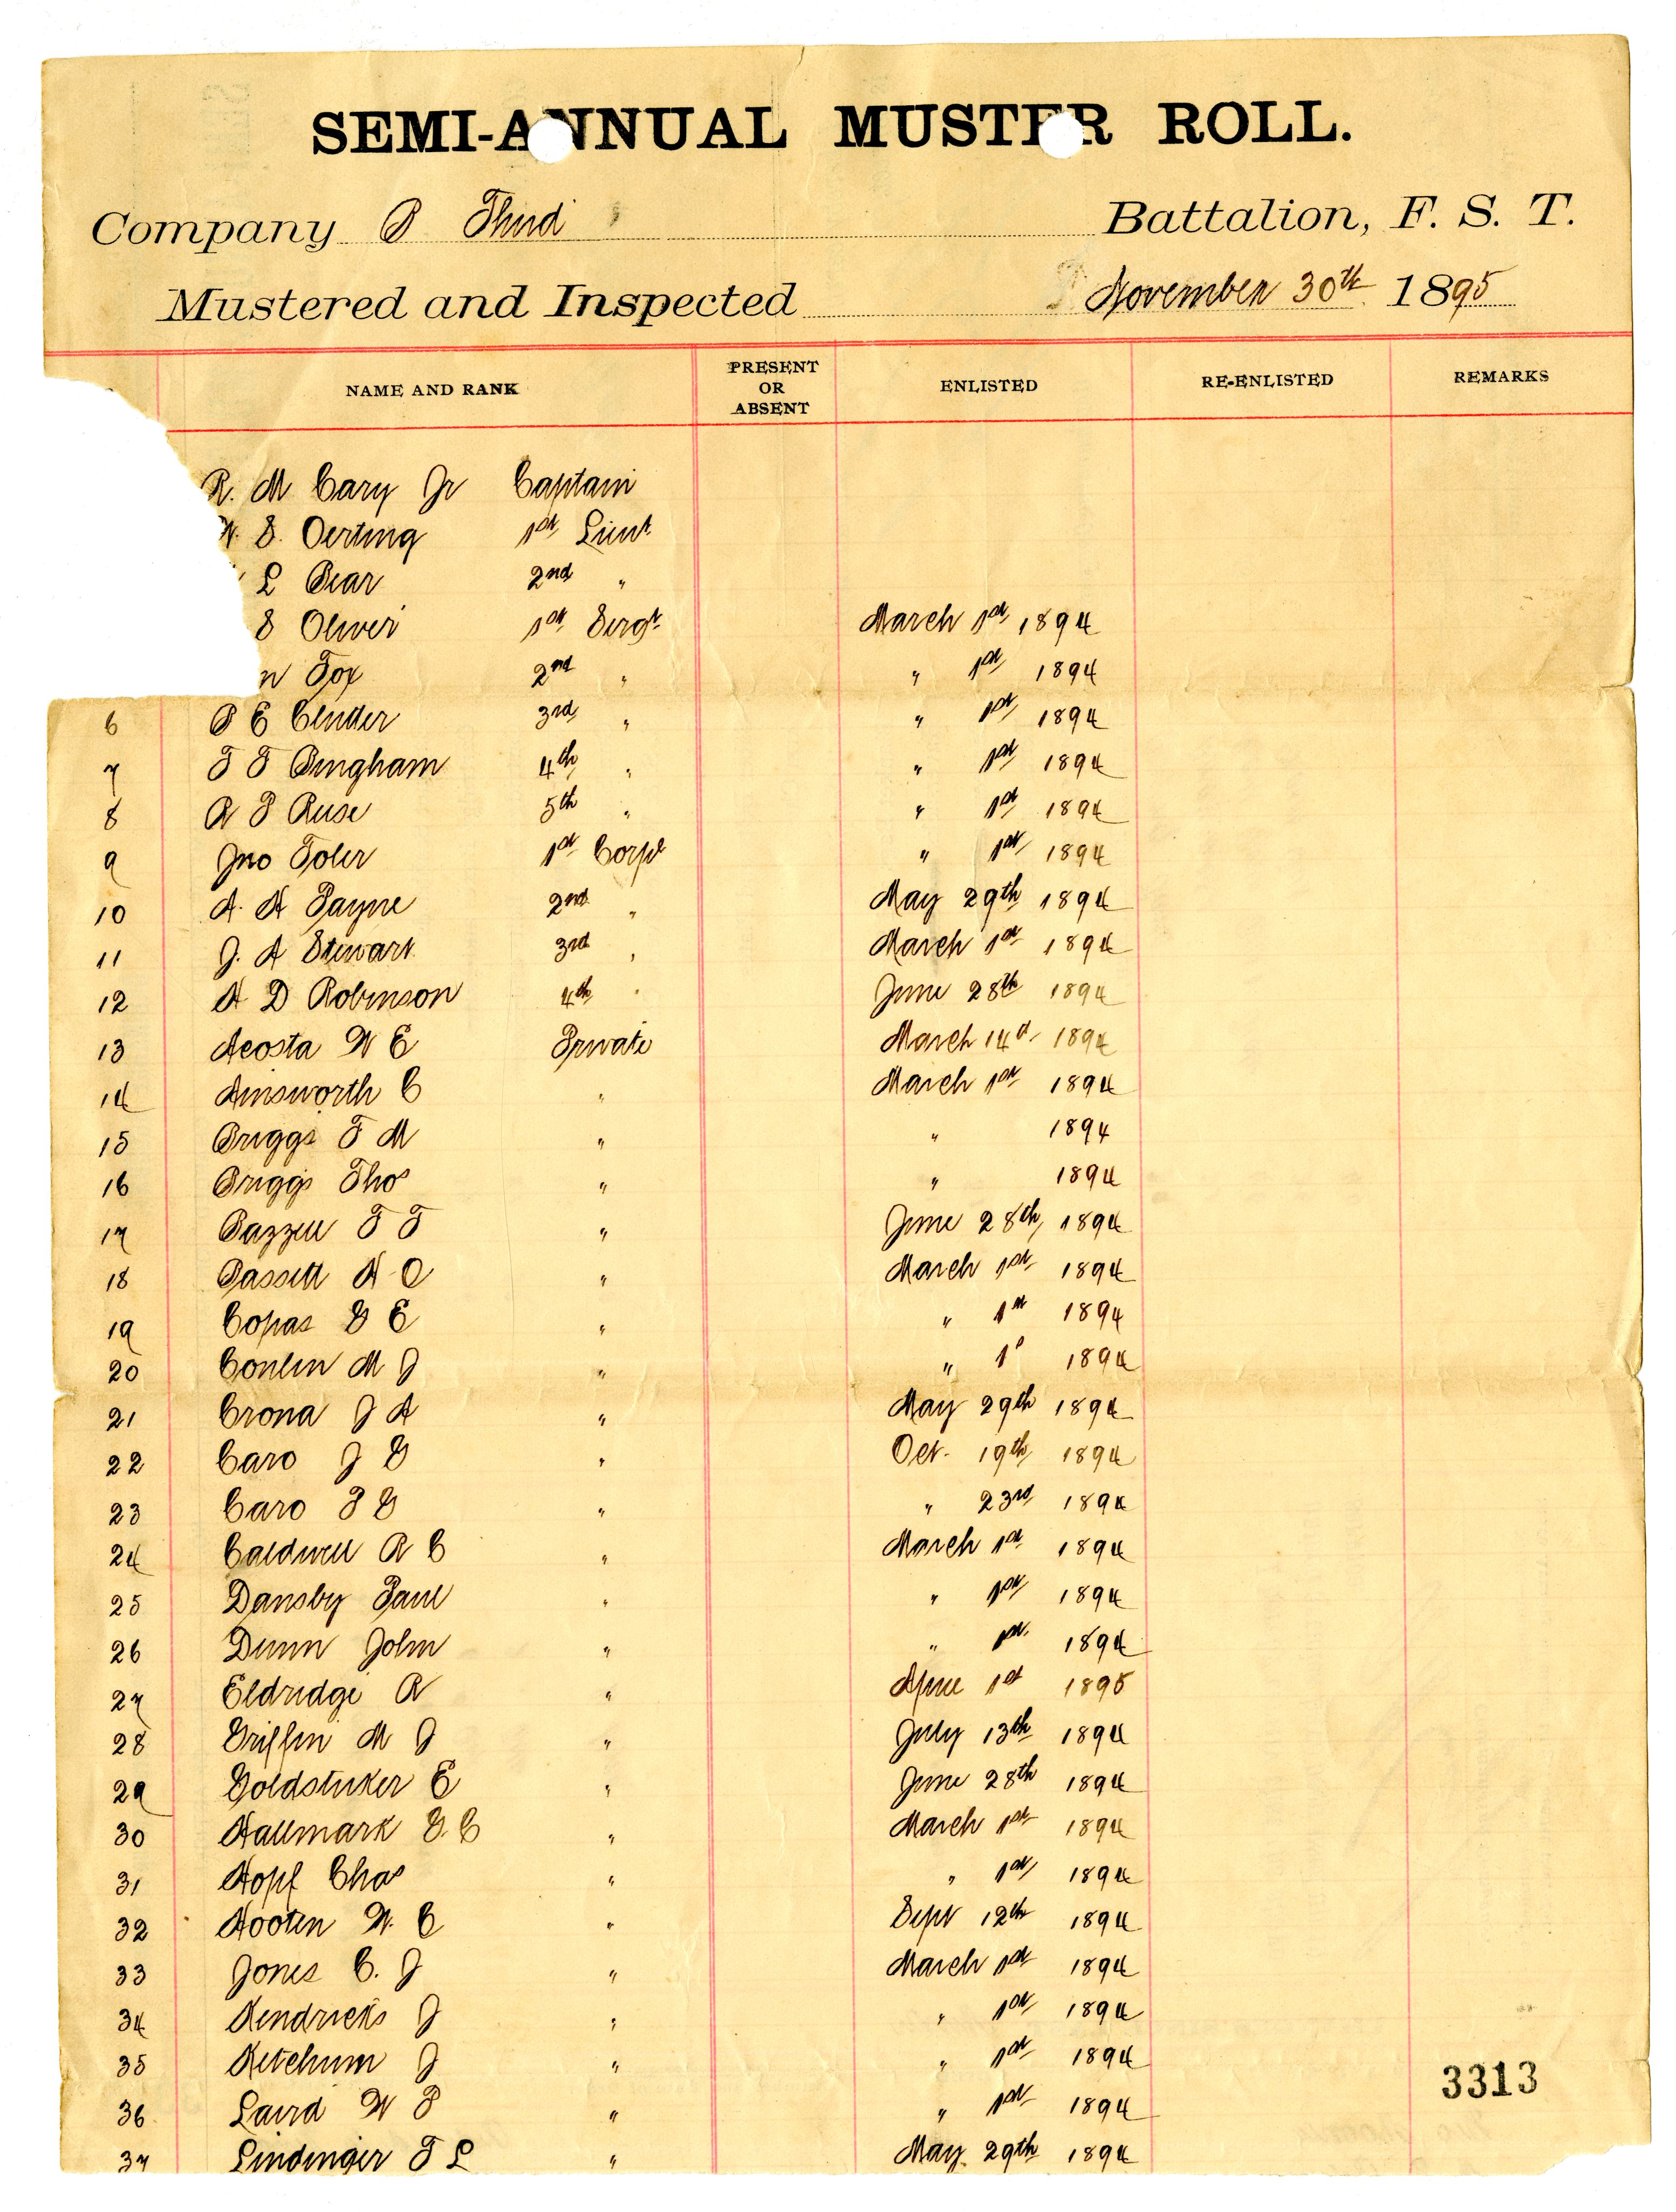 SEMI-ANNUAL MUSTER ROLL.
Company B Third Battalion, F. S. T.
Mustered and Inspected November 30th 1895
NAME AND RANK PRESENT OR ABSENT ENLISTED RE-ENLISTED REMARKS
R. M Cary Jr Captain
Oerting 1st Lieut
L Bear 2nd "
S Oliver 1st Sergt March 1st 1894
Fox 2nd " " 1st 1894
6 B E 3rd " " 1st 1894
7 T T Bingham 4th " " 1st 1894
8 Ruse 5th " " 1st 1894
9 Jno Toler 1st Corpl " 1st 1894
10 A. H Payne 2nd " May 29th 1894
11 J. A Stewart 3rd " March 1st 1894
12 H D Robinson 4th " June 28th 1894
13 Acosta W E Private March 14th 1894
14 Ainsworth C " March 1st 1894
15 Briggs F M " " 1894
16 Briggs Thos " " 1894
17 Bazzell T F " June 28th 1894
18 Bassett H O " March 1st 1894
19 Copas G E " " 1st 1894
20 Conlin M J " " 1st 1894
21 Crona J A " May 29th 1894
22 Caro J G " Oct. 19th 1894
23 Caro " " 23rd 1894
24 Caldwell R C " March 1st 1894
25 Dansby Paul " " 1st 1894
26 Dunn John " " 1st 1894
27 Eldridge R " April 1st 1895
28 Griffin M J " July 13th 1894
29 Goldstuker E " June 28th 1894
30 Hallmark G. C " March 1st 1894
31 Hopf Chas " " 1st 1894
32 Hooten W. C " Sept 12th 1894
33 Jones C. J " March 1st 1894
34 Kendricks J " " 1st 1894
35 Ketchum J " " 1st 1894
36 Laird W P " " 1st 1894
37 Lindinger F L " May 29th 1894
3313